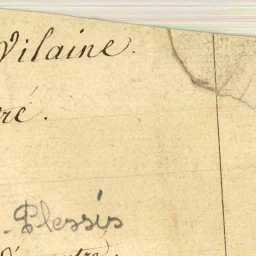 Vilaine.
ré.
Plessis